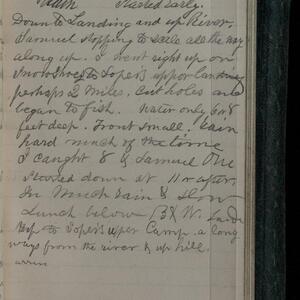 Started early.
Down to Landing and up River,
Samuel stopping to settle all the way
along up. I went right up on
Snowshoes to Soper's upper landing
perhaps 2 miles. Cut holes and
began to fish. Water only 6 or 8
feet deep. Trout small. Rain
hard much of the time
I caught 8 & Samuel One
Started down at 11 or after.
In Much rain & Slow
Lunch below
Up to Soper's upper Camp. a long
ways from the river & up hill.